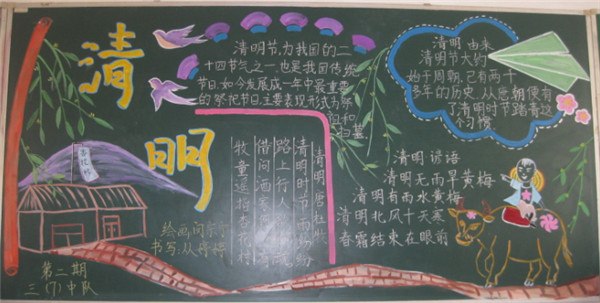 清明
清明节,为我国的二
十四节气之一,也是我国传统
节日,如今发展成一年中最重要
的祭祀节日,主要表现形式为祭
祖和
扫墓
清明 由来
清明节大约
始于周朝,已有两千
多年的历史,从唐朝便有
了清明时节踏青这
个习惯
清明唐杜牧
清明时节雨纷纷
路上行人欲断魂
借问酒家何处有
牧童遥指杏花村
清明 谚语
清明无雨旱黄梅
清明有雨水黄梅
清明北风十天寒
春霜结束在眼前
杏花村
绘画:
书写:从婷婷
第二期
三(7)中队